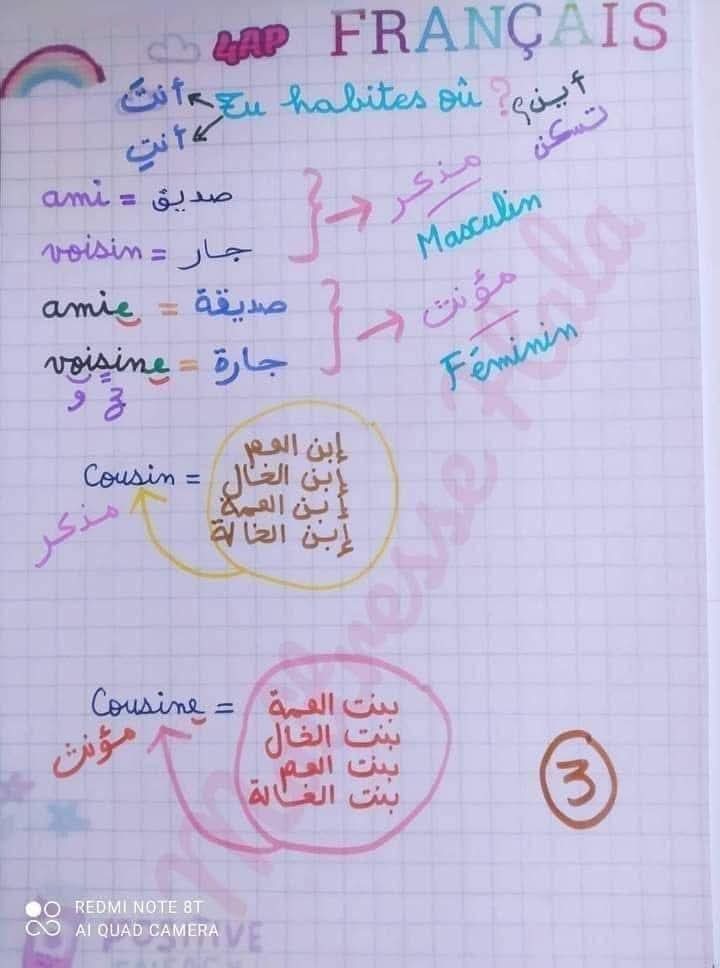 4AP FRANÇAIS
أنتَ Tu habites où ? أين؟
أنتِ تسكن
ami = صديق
مذكر
voisin = جار
Masculin
amie = صديقة
مؤنث
voisine = جارة
Féminin
و ز
Cousin = إبن العم
إبن الخال
إبن العمة
إبن الخالة
مذكر
Cousine = بنت العمة
بنت الخال
بنت العم
بنت الخالة
مؤنث
3
REDMI NOTE 8T
AI QUAD CAMERA
POSITIVE